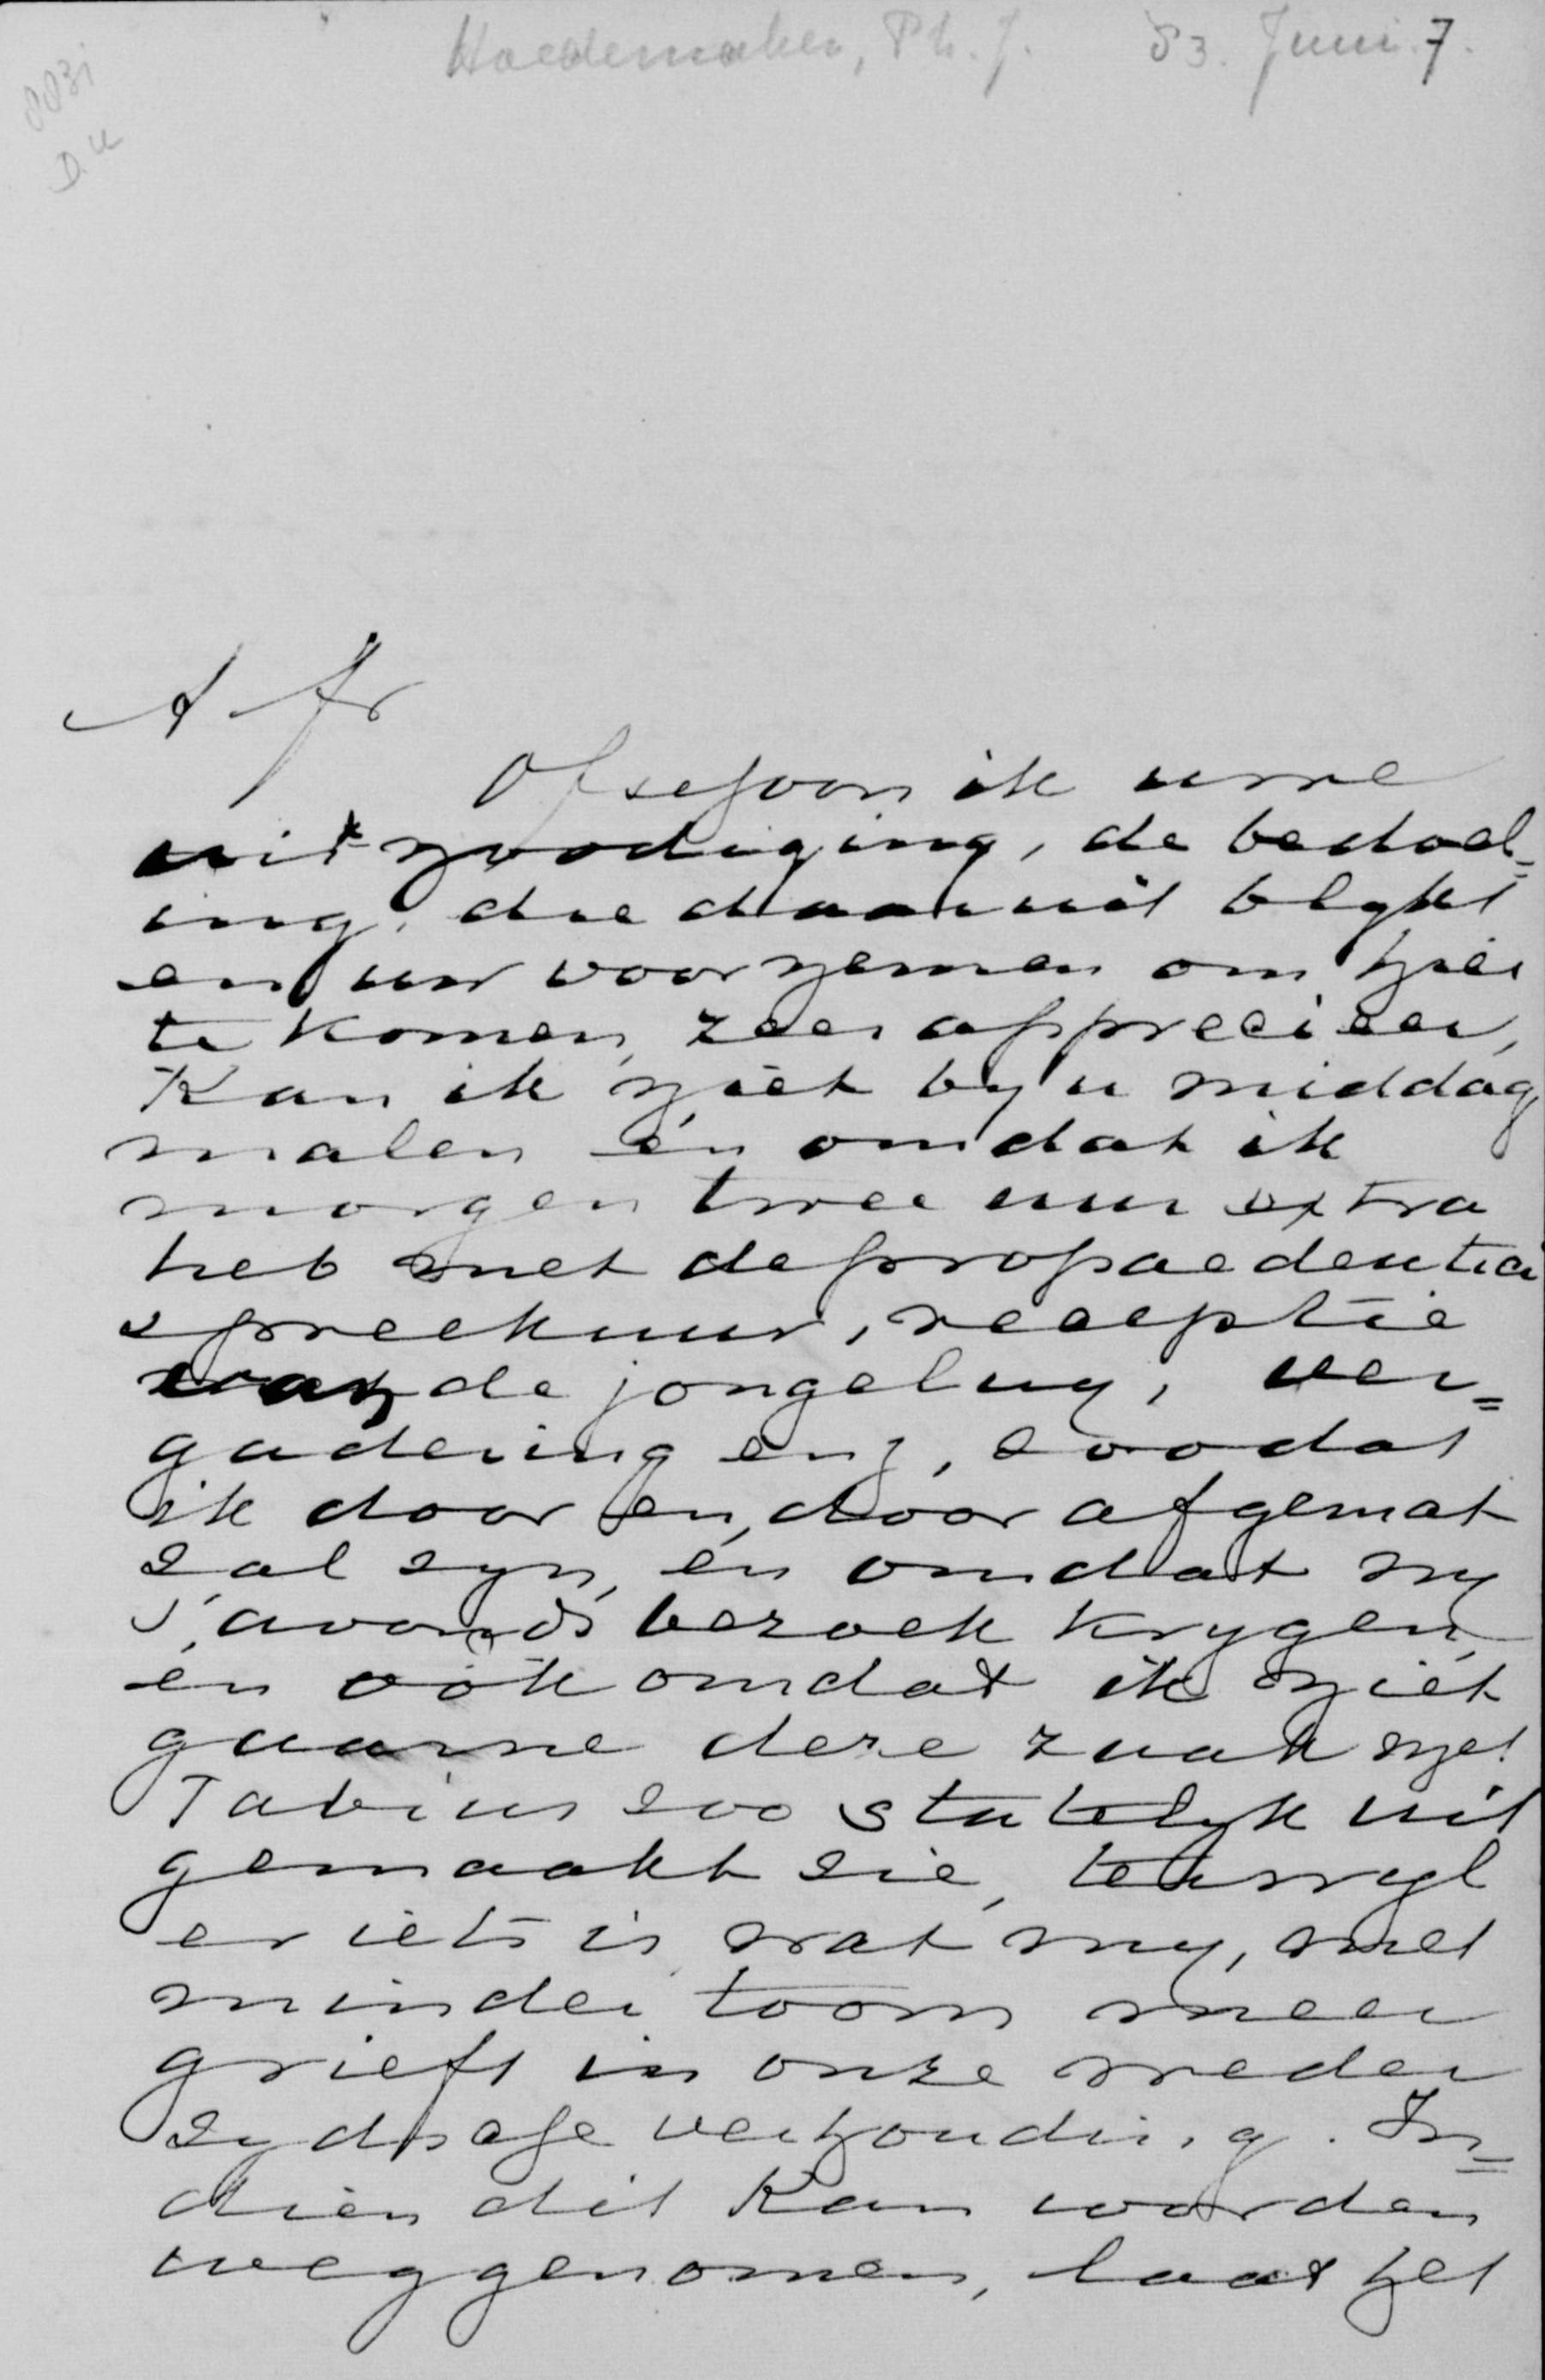 Hoedemaker, Ph. J. 83. Juni 7.
8831
D. U
A fr
Ofschoon ik uwe
uitnoodiging, de bedoel=
ing, die daaruit blykt
en uw voornemen om hier
te komen, zeer apprecieer,
Kan ik niet by u middag
malen èn omdat ik
morgen twee uur extra
heb met de propaedeutici
spreekuur, receptie
van de jongeluy, ver=
gadering enz, zoodat
ik door en door afgemat
zal zyn, èn omdat wy
s'avonds bezoek krygen,
èn oók omdat ik niet
gaarne deze zaak met
Fabius zoo statelyk uit
gemaakt zie, terwyl
er iets is wat my, met
minder toorn meer
grieft in onze weder
zydsche verhouding. In=
dien dit kan worden
weggenomen, laat het